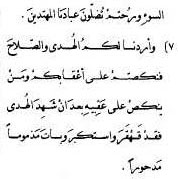 السوء ورحتم تضلون عبادنا المهتدين .
(٧) وأردنا لكم الهدى والصلاح
فنكصتم على أعقابكم ومن
ينكص على عقبيه بعد ان شهد الهدى
فقد قهقر واستكبر وبات مذموماً
مدحوراً .